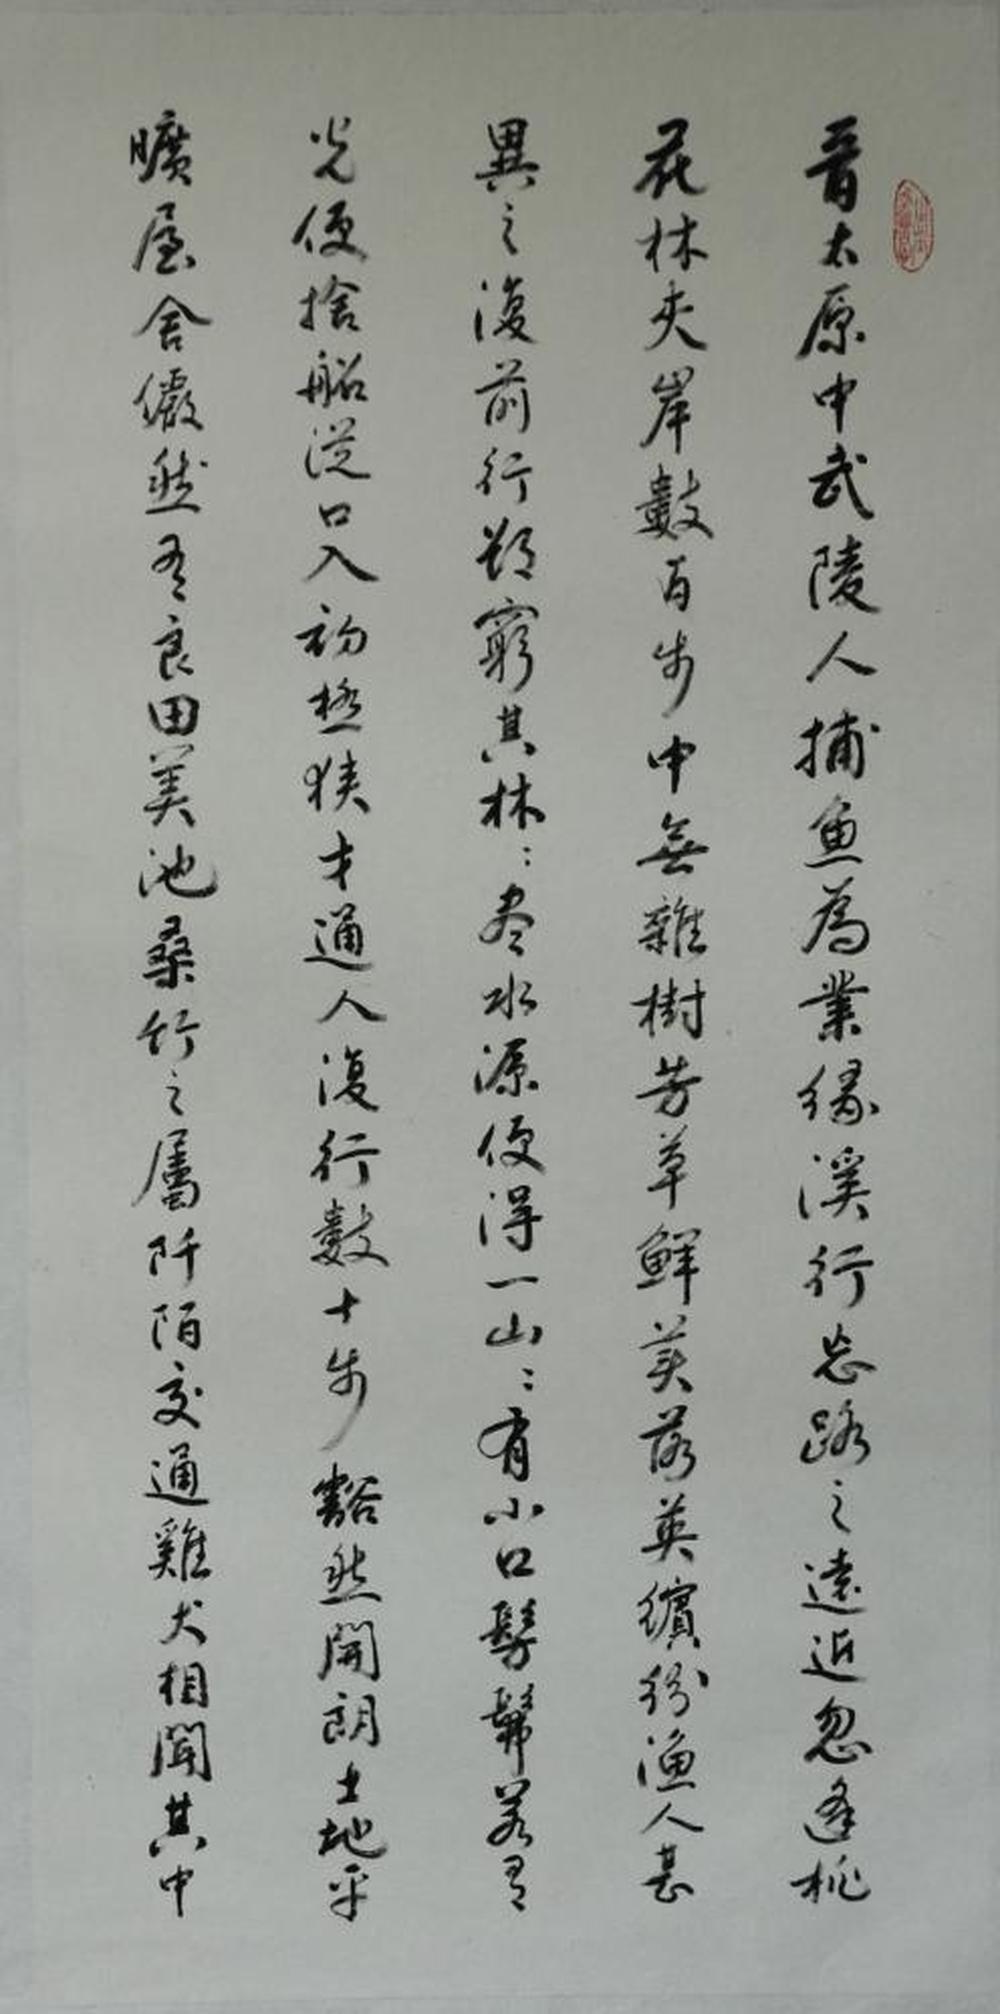 晉太原中武陵人捕魚為業緣溪行忘路之遠近忽逢桃
花林夾岸數百步中無雜樹芳草鮮美落英繽紛漁人甚
異之復前行欲窮其林〻盡水源便得一山〻有小口髣髴若有
光便捨船從口入初極狹才通人復行數十步豁然開朗土地平
曠屋舍儼然有良田美池桑竹之屬阡陌交通雞犬相聞其中